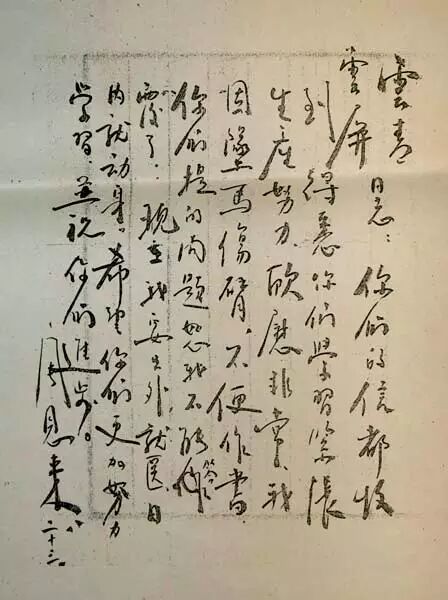 雲青
雲屏同志：你们的信都收
到，得悉你们學習緊張
生産努力，欣慰非常，我
因墜馬傷臂，不便作書，
你们提的问題恕我不能作答
覆了。现在我要出外就医，日
内就动身。希望你们更加努力
学習，並祝你们進步。
周恩来
八、二十三